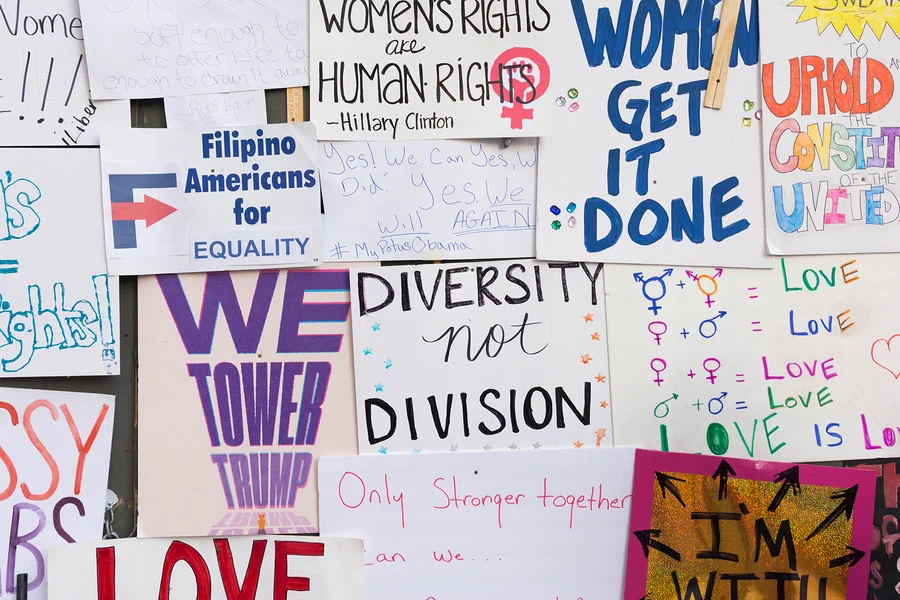 Wome
!!!
soft enough to
to offer life ta
enough to drown it away
WOMEN'S RIGHTS
are
HUMAN RIGHTS
~Hillary Clinton
WOMEN
GET
IT
DONE
SWEAR
TO
UPHOLD
THE
CONSTIT
OF THE
UNITED
Filipino
Americans
for
EQUALITY
Yes! We Can. Yes, W
Did. Yes, We
Will AGAIN
# MyPotusObama
'S
=
ights!
WE
TOWER
TRUMP
DIVERSITY
not
DIVISION
⚧ + ⚧ = LOVE
♀ + ♂ = LOVE
♀ + ♀ = LOVE
♂ + ♂ = LOVE
LOVE IS LOV
SSY
BS
Only Stronger together
can we...
LOVE
I'M
WITH